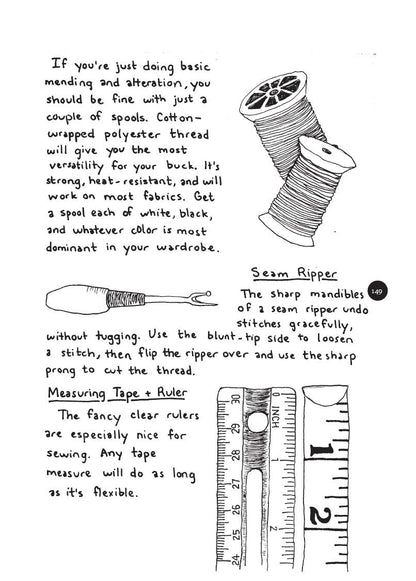 If you're just doing basic
mending and alteration, you
should be fine with just a
couple of spools. Cotton-
wrapped polyester thread
will give you the most
versatility for your buck. It's
strong, heat-resistant, and will
work on most fabrics. Get
a spool each of white, black,
and whatever color is most
dominant in your wardrobe.
Seam Ripper
The sharp mandibles
149
of a seam ripper undo
stitches gracefully,
without tugging. Use the blunt-tip side to loosen
a stitch, then flip the ripper over and use the sharp
prong to cut the thread.
Measuring Tape + Ruler
The fancy clear rulers
are especially nice for
sewing. Any tape
measure will do as long
as it's flexible.
30
29
28
27
26
25
24
0
INCH
1
2
1
2